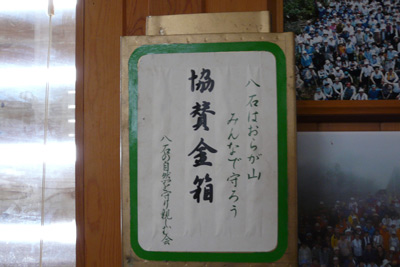 八石はおらが山
みんなで守ろう
協賛金箱
八石の自然を守り親しむ会